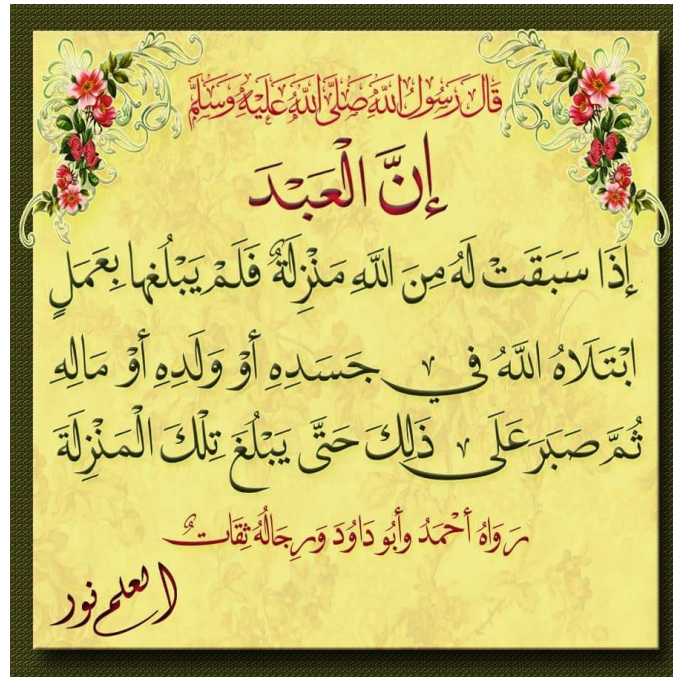 قَالَ رَسُولُ اللَّهِ صَلَّى اللَّهُ عَلَيْهِ وَسَلَّمَ
إِنَّ الْعَبْدَ
إِذَا سَبَقَتْ لَهُ مِنَ اللَّهِ مَنْزِلَةٌ فَلَمْ يَبْلُغْهَا بِعَمَلٍ
ابْتَلَاهُ اللَّهُ في جَسَدِهِ أَوْ وَلَدِهِ أَوْ مَالِهِ
ثُمَّ صَبَرَ عَلَى ذَلِكَ حَتَّى يَبْلُغَ تِلْكَ الْمَنْزِلَةَ
رَوَاهُ أَحْمَدُ وأَبُو دَاوُدَ وَرِجَالُهُ ثِقَاتٌ
العلم نور